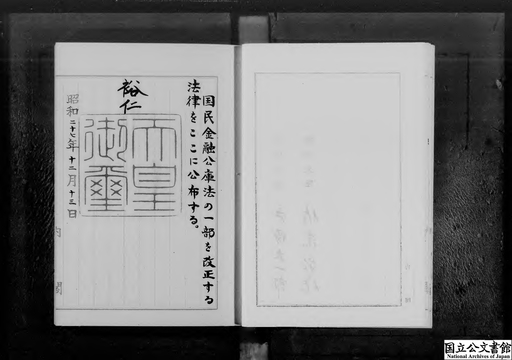 国民金融公庫法の一部を改正する
法律をここに公布する。
裕仁
天皇
御璽
昭和二十七年十二月十三日
内閣
国立公文書館
National Archives of Japan